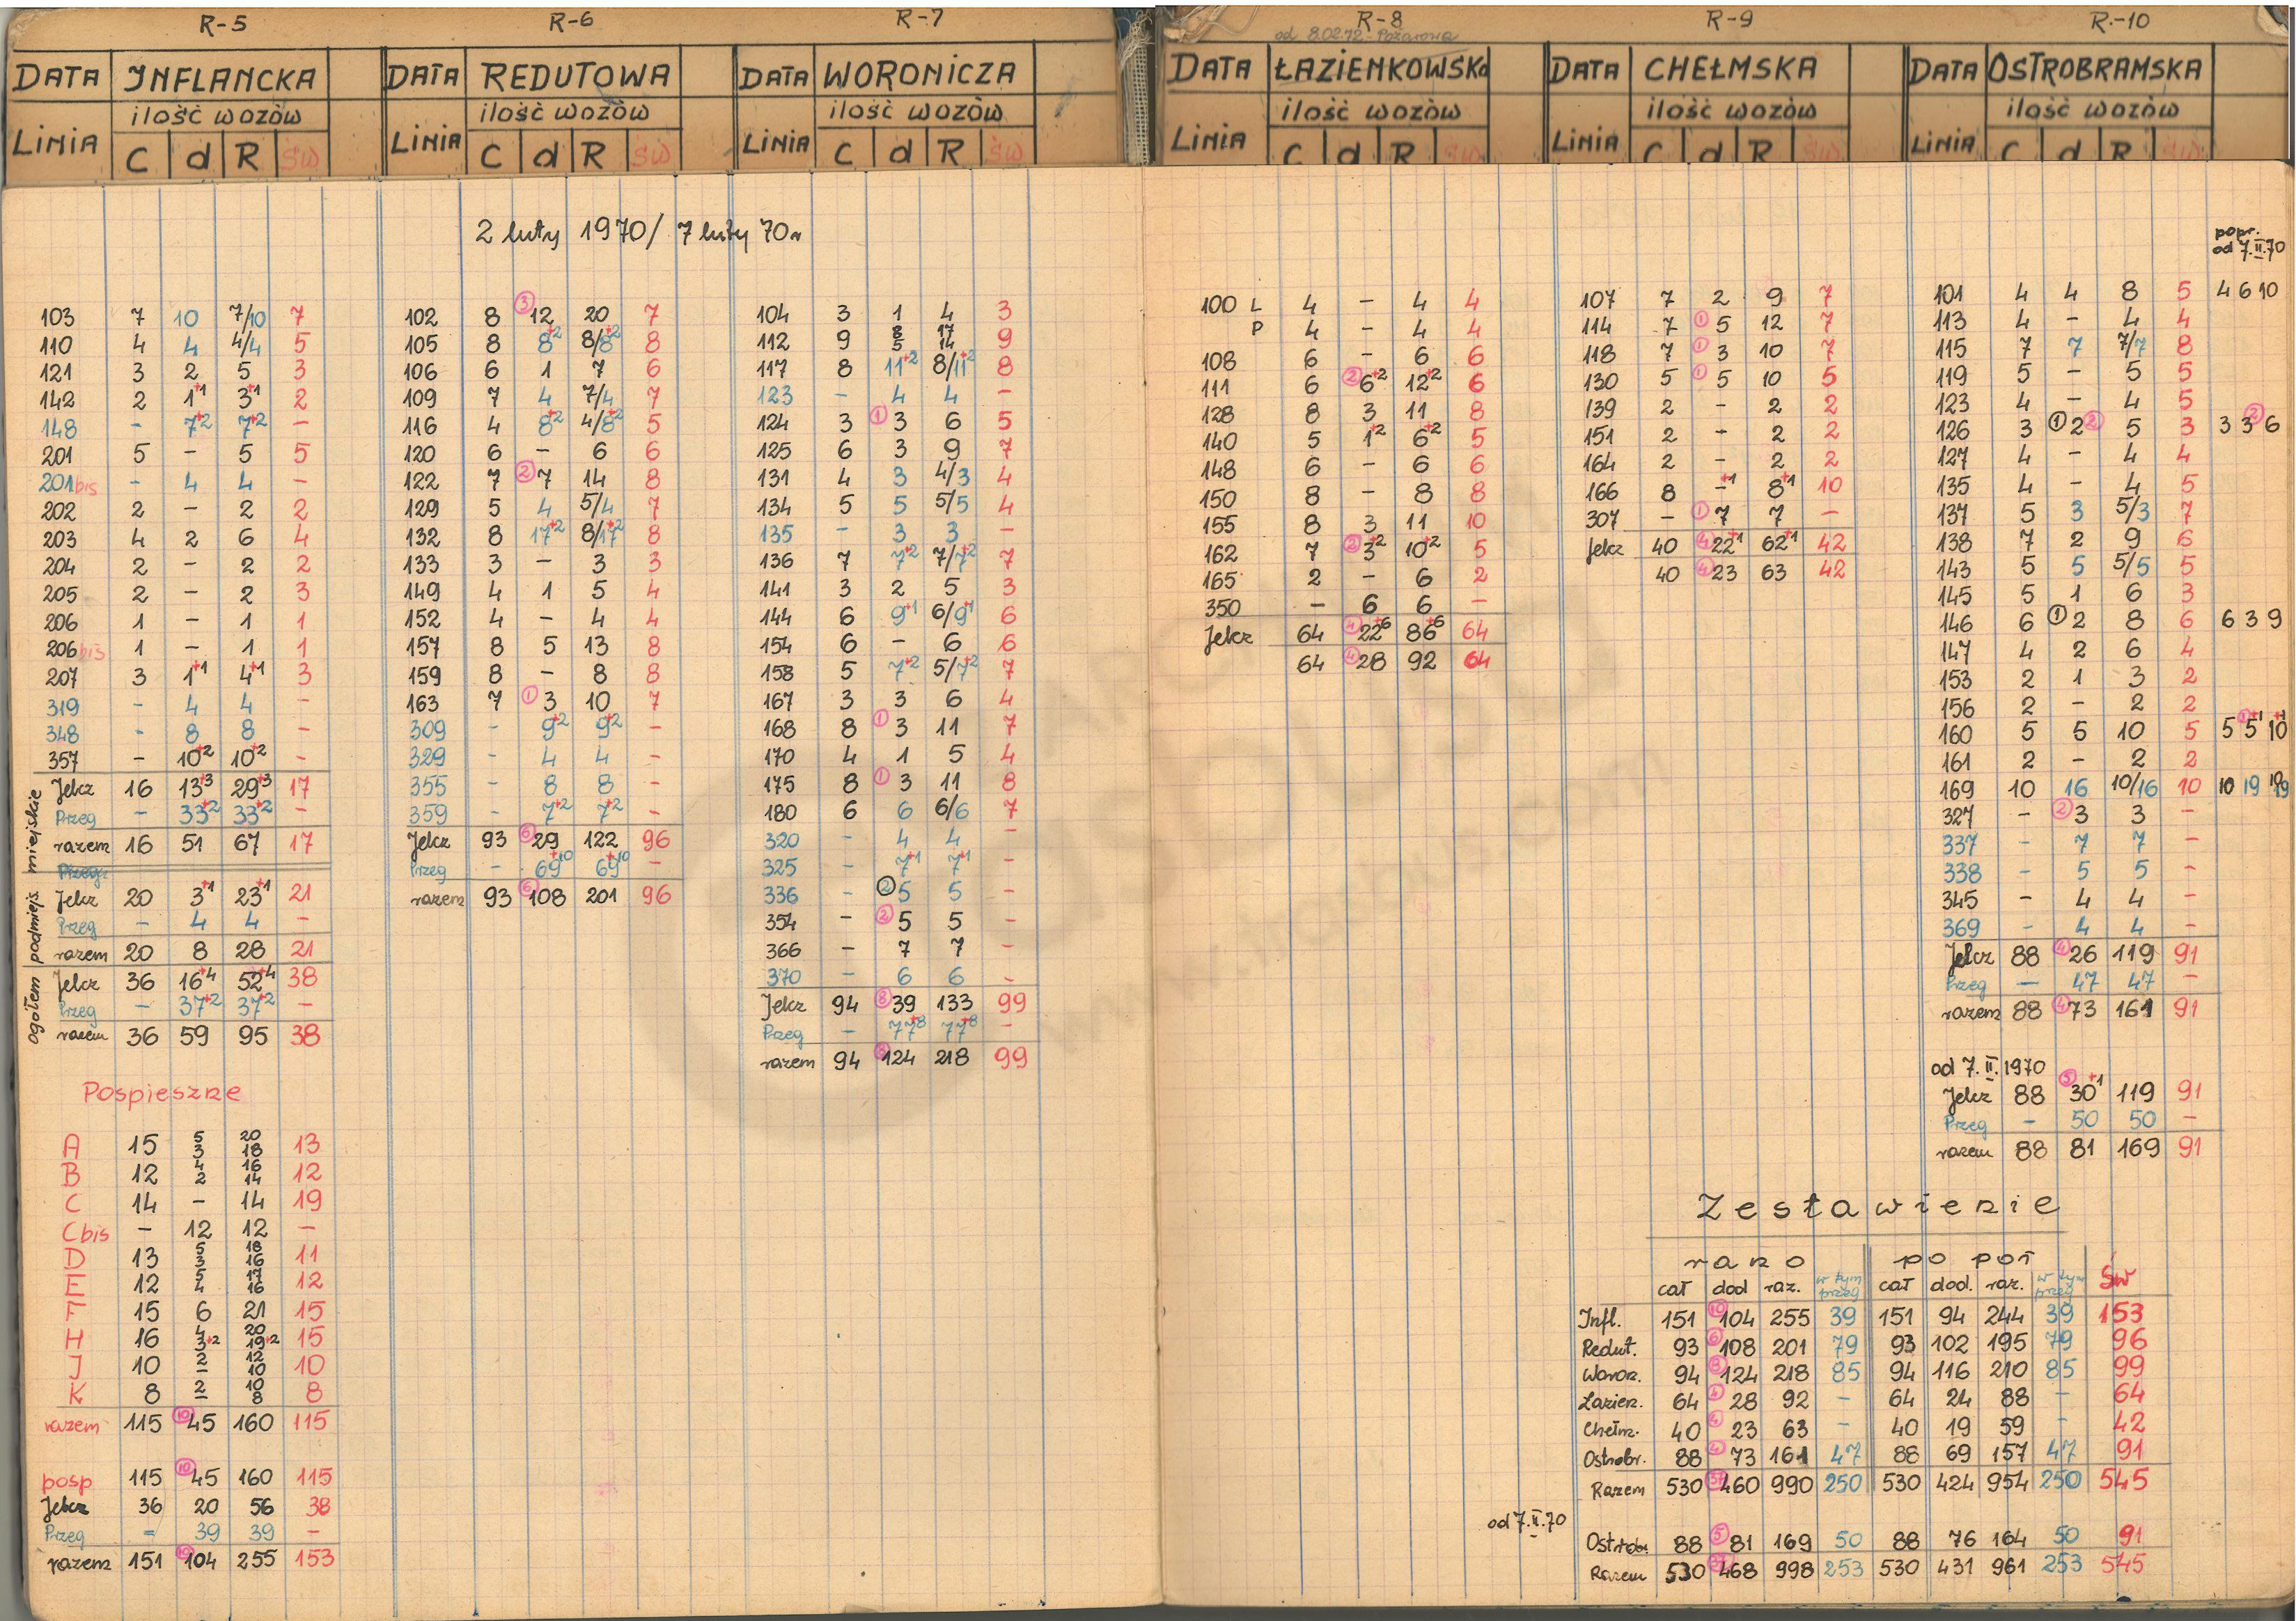 R-5
DATA INFLANCKA
ilość wozów
LINIA C d R ŚW
103 7 10 7/10 7
110 4 4 4/4 5
121 3 2 5 3
142 2 1+1 3+1 2
148 - 7+2 7+2 -
201 5 - 5 5
201bis - 4 4 -
202 2 - 2 2
203 4 2 6 4
204 2 - 2 2
205 2 - 2 3
206 1 - 1 1
206bis 1 - 1 1
207 3 1+1 4+1 3
319 - 4 4 -
348 - 8 8 -
357 - 10+2 10+2 -
miejskie
Jelcz 16 13+3 29+3 17
Przeg - 33+2 33+2 -
razem 16 51 67 17
Przeg.
podmiejs.
Jelcz 20 3+1 23+1 21
Przeg - 4 4 -
razem 20 8 28 21
ogółem
Jelcz 36 16+4 52+4 38
Przeg - 37+2 37+2 -
razem 36 59 95 38
Pospieszne
A 15 5 3 20 18 13
B 12 4 2 16 14 12
C 14 - 14 19
C bis - 12 12 -
D 13 5 3 18 16 11
E 12 5 4 17 16 12
F 15 6 21 15
H 16 4 3+2 20 19+2 15
J 10 2 - 12 10 10
K 8 2 - 10 8 8
razem 115 (10) 45 160 115
posp 115 (10) 45 160 115
Jelcz 36 20 56 38
Przeg - 39 39 -
razem 151 (10) 104 255 153
R-6
DATA REDUTOWA
ilość wozów
LINIA C d R ŚW
2 luty 1970/ 7 luty 70r
102 8 (3) 12 20 7
105 8 8+2 8/8+2 8
106 6 1 7 6
109 7 4 7/4 7
116 4 8+2 4/8+2 5
120 6 - 6 6
122 7 (2) 7 14 8
129 5 4 5/4 7
132 8 17+2 8/17+2 8
133 3 - 3 3
149 4 1 5 4
152 4 - 4 4
157 8 5 13 8
159 8 - 8 8
163 7 (1) 3 10 7
309 - 9+2 9+2 -
329 - 4 4 -
355 - 8 8 -
359 - 7+2 7+2 -
Jelcz 93 (6) 29 122 96
Przeg - 69+10 69+10 -
razem 93 (6) 108 201 96
R-7
DATA WORONICZA
ilość wozów
LINIA C d R ŚW
104 3 1 4 3
112 9 8 5 17 14 9
117 8 11+2 8/11+2 8
123 - 4 4 -
124 3 (1) 3 6 5
125 6 3 9 7
131 4 3 4/3 4
134 5 5 5/5 4
135 - 3 3 -
136 7 7+2 7/7+2 7
141 3 2 5 3
144 6 9+1 6/9+1 6
154 6 - 6 6
158 5 7+2 5/7+2 7
167 3 3 6 4
168 8 (1) 3 11 7
170 4 1 5 4
175 8 (1) 3 11 8
180 6 6 6/6 7
320 - 4 4 -
325 - 7+1 7+1 -
336 - (2) 5 5 -
354 - (2) 5 5 -
366 - 7 7 -
370 - 6 6 -
Jelcz 94 (8) 39 133 99
Przeg - 77+8 77+8 -
razem 94 (8) 124 218 99
R-8
od 8.02.72 - Pożarowa
DATA ŁAZIENKOWSKa
ilość wozów
LINIA C d R ŚW
100 L 4 - 4 4
P 4 - 4 4
108 6 - 6 6
111 6 (2) 6+2 12+2 6
128 8 3 11 8
140 5 1+2 6+2 5
148 6 - 6 6
150 8 - 8 8
155 8 3 11 10
162 7 (2) 3+2 10+2 5
165 2 - 6 2
350 - 6 6 -
Jelcz 64 (4) 22+6 86+6 64
64 (4) 28 92 64
R-9
DATA CHEŁMSKA
ilość wozów
LINIA C d R ŚW
107 7 2 9 7
114 7 (1) 5 12 7
118 7 (1) 3 10 7
130 5 (1) 5 10 5
139 2 - 2 2
151 2 - 2 2
164 2 - 2 2
166 8 -+1 8+1 10
307 - (1) 7 7 -
Jelcz 40 (4) 22+1 62+1 42
40 (4) 23 63 42
R-10
DATA OSTROBRAMSKA
ilość wozów
LINIA C d R ŚW
popr.
od 7.II.70
101 4 4 8 5 4 6 10
113 4 - 4 4
115 7 7 7/7 8
119 5 - 5 5
123 4 - 4 5
126 3 (1) 2 (2) 5 3 3 3 (2) 6
127 4 - 4 4
135 4 - 4 5
137 5 3 5/3 7
138 7 2 9 6
143 5 5 5/5 5
145 5 1 6 3
146 6 (1) 2 8 6 6 3 9
147 4 2 6 4
153 2 1 3 2
156 2 - 2 2
160 5 5 10 5 5 (1) 5+1 10+1
161 2 - 2 2
169 10 16 10/16 10 10 19 10/19
327 - (2) 3 3 -
337 - 7 7 -
338 - 5 5 -
345 - 4 4 -
369 - 4 4 -
Jelcz 88 (4) 26 119 91
Przeg - 47 47 -
razem 88 (4) 73 161 91
od 7.II.1970
Jelcz 88 (5) 30+1 119 91
Przeg - 50 50 -
razem 88 81 169 91
Zestawienie
rano po poł
cał dod raz. w tym przeg cał dod. raz. w tym przeg Św
Infl. 151 (10) 104 255 39 151 94 244 39 153
Redut. 93 (6) 108 201 79 93 102 195 79 96
Woron. 94 (8) 124 218 85 94 116 210 85 99
Łazien. 64 (4) 28 92 - 64 24 88 - 64
Chełm. 40 (4) 23 63 - 40 19 59 - 42
Ostrobr. 88 (4) 73 161 47 88 69 157 47 91
Razem 530 460 990 250 530 424 954 250 545
od 7.II.70
Ostrobr 88 (5) 81 169 50 88 76 164 50 91
Razem 530 (37) 468 998 253 530 431 961 253 545